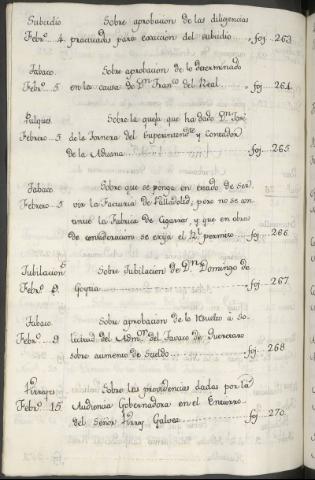 Subsidio Sobre aprobacion de las diligencias
Febro. 4. practicadas para exaccion del subsidio foj. 263.
Tabaco. Sobre aprobacion de lo determinado
Febro. 5 en la causa de Dn. Franco. del Real foj. 264.
Pulques Sobre la queja que ha dado Dn. José
Febrero 5 de la del Superintendte. y Contador
de la Aduana foj. 265.
Tabaco Sobre que se ponga en estado de Ser
Febrero 5 vir la Factoria de Valladolid, pero no se con
tinue la Fabrica de Cigarros, y que en obras
de consideracion se exija el Rl. permiso foj. 266.
Jubilacions. Sobre Jubilacion de Dn. Domingo de
Febro. 8. Goyria foj. 267.
Tabaco Sobre aprobacion de lo resuelto à So-
Febro. 9 licitud del Admor. del Tavaco de Queretaro
sobre aumento de Sueldo foj. 268.
Virreyes Sobre las providencias dadas por la
Febro. 15 Audiencia Gobernadora en el Entierro
del Señor Virrey Galvez foj. 270.